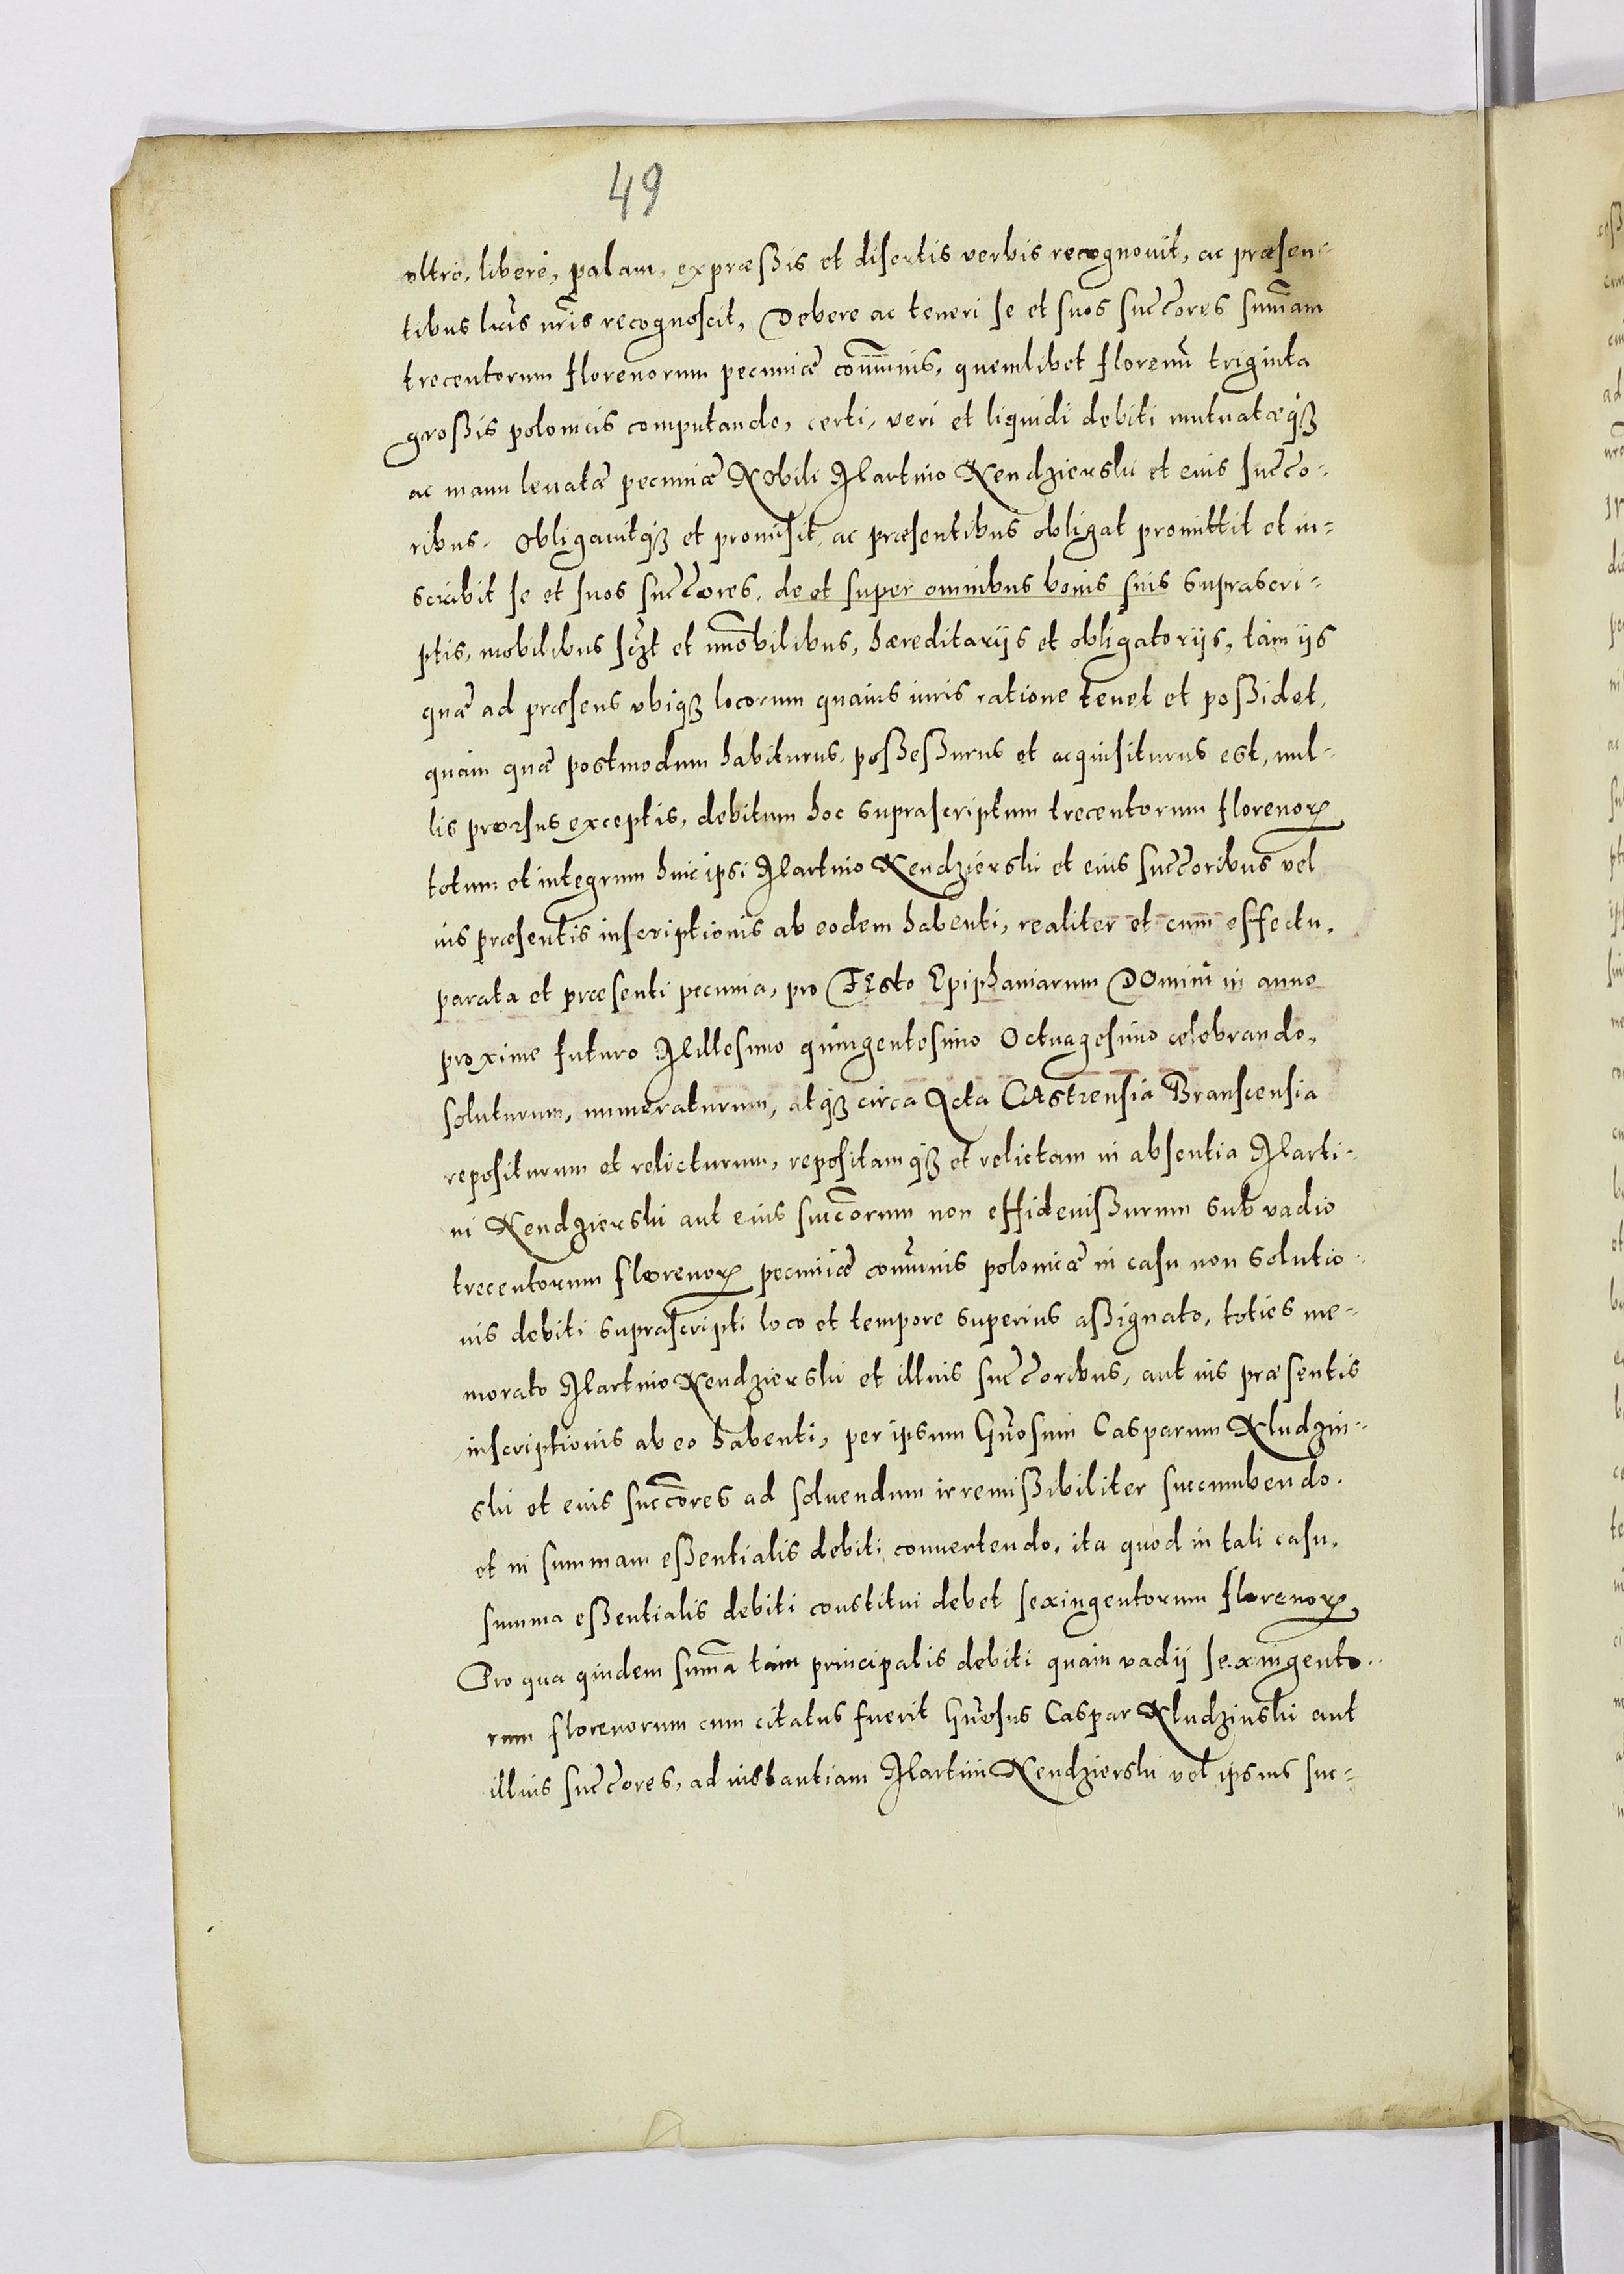 49
ultro, liberè, palam, expræßis et disertis verbis recognouit, ac præsen-
tibus lr̃is nr̃is recognoscit, Debere ac teneri se et suos succ̃ores sum̃am
trecentorum florenorum pecuniæ com̃unis, quemlibet florenũ triginta
großis polonicis computando, certi, veri et liquidi debiti mutuatæq3
ac manu leuatæ pecuniæ Nobili Martino Kendzierski et eius succo-
ribus. Obligauitq3 et promisit, ac præsentibus obligat promittit et in-
scribit se et suos succ̃ores, de et super omnibus bonis suis suprascri-
ptis, mobilibus sczt et im̃obilibus, hæreditarijs et obligatorijs, tàm ijs
quæ ad præsens vbiq3 locorum quauis iuris ratione tenet et poßidet,
quàm quæ postmodum habiturus, poßeßurus et acquisiturus est, nul-
lis prorsus exceptis, debitum hoc suprascriptum trecentorum florenoꝝ
totum et integrum huic ipsi Martino Kendzierski et eius succ̃oribus vel
ius præsentis inscriptionis ab eodem habenti, realiter et cum effectu,
parata et præsenti pecunia, pro FEsto Epiphaniarum DOmini in anno
proxime futuro Millesimo quingentesimo Octuagesimo celebrando,
soluturum, numeraturum, atq3 circa Acta CAstrensia Branscensia
repositurum et relicturum, repositamq3 et relictam in absentia Marti-
ni Kendzierski aut eius succ̃orum non effideiußurum sub vadio
trecentorum florenoꝝ pecuniæ com̃unis polonicæ in casu non solutio-
nis debiti suprascripti loco et tempore superius aßignato, toties me-
morato Martino Kendzierski et illius succ̃oribus, aut ius præsentis
inscriptionis ab eo habenti, per ipsum Gñosum Casparum Kludzin-
ski et eius succ̃ores ad soluendum irremißibiliter succumbendo.
et in summam eßentialis debiti conuertendo, ita quod in tali casu,
summa eßentialis debiti constitui debet sexingentorum florenoꝝ,
Pro qua quidem sum̃a tàm principalis debiti quàm vadij sexingento-
rum florenorum cum citatus fuerit Gñosus Caspar Kludzinski aut
illius succ̃ores, ad instantiam Martini Kendzierski vel ipsius suc-